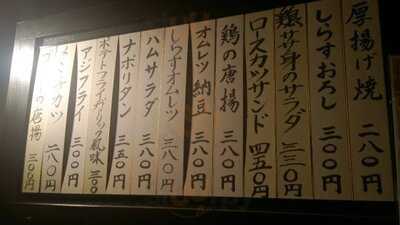 厚揚げ焼 二八〇円
しらすおろし 三〇〇円
鶏ササ身のサラダ 三三〇円
ロースカツサンド 四五〇円
鶏の唐揚 三八〇円
オムレツ納豆 三八〇円
しらすオムレツ 三八〇円
ハムサラダ 三八〇円
ナポリタン 三五〇円
ポテトフライガーリック風味 三〇〇円
アジフライ 三〇〇円
カツ 二八〇円
の唐揚 三〇〇円